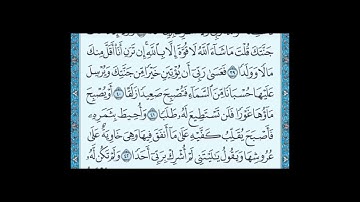 جَنَّتَكَ قُلْتَ مَا شَاءَ اللَّهُ لَا قُوَّةَ إِلَّا بِاللَّهِ إِن تَرَنِ أَنَا أَقَلَّ مِنكَ
مَالًا وَوَلَدًا ٣٩ فَعَسَىٰ رَبِّي أَن يُؤْتِيَنِ خَيْرًا مِّن جَنَّتِكَ وَيُرْسِلَ
عَلَيْهَا حُسْبَانًا مِّنَ السَّمَاءِ فَتُصْبِحَ صَعِيدًا زَلَقًا ٤٠ أَوْ يُصْبِحَ
مَاؤُهَا غَوْرًا فَلَن تَسْتَطِيعَ لَهُ طَلَبًا ٤١ وَأُحِيطَ بِثَمَرِهِ
فَأَصْبَحَ يُقَلِّبُ كَفَّيْهِ عَلَىٰ مَا أَنفَقَ فِيهَا وَهِيَ خَاوِيَةٌ عَلَىٰ
عُرُوشِهَا وَيَقُولُ يَا لَيْتَنِي لَمْ أُشْرِكْ بِرَبِّي أَحَدًا ٤٢ وَلَمْ تَكُن لَّهُ